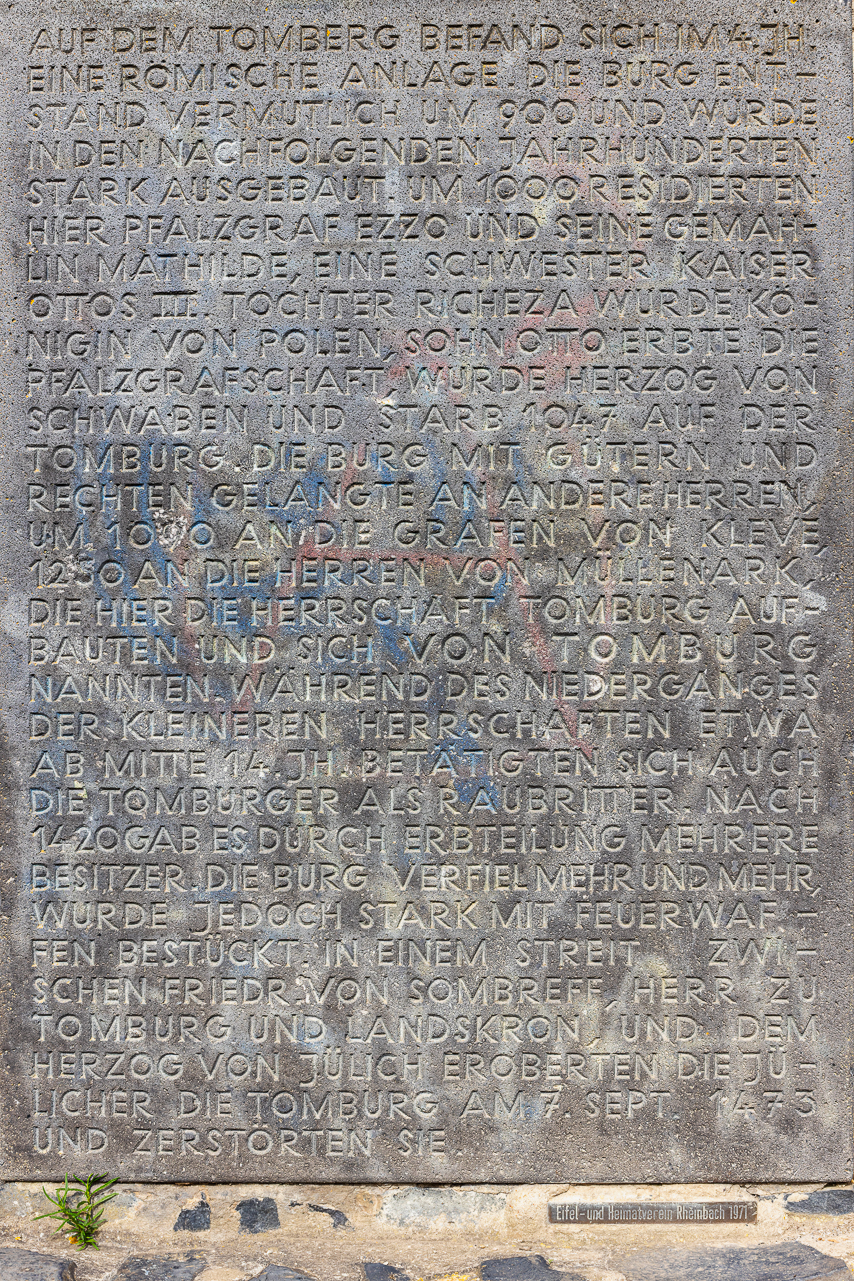 AUF DEM TOMBERG BEFAND SICH IM 4. JH.
EINE RÖMISCHE ANLAGE. DIE BURG ENT-
STAND VERMUTLICH UM 900 UND WURDE
IN DEN NACHFOLGENDEN JAHRHUNDERTEN
STARK AUSGEBAUT. UM 1000 RESIDIERTEN
HIER PFALZGRAF EZZO UND SEINE GEMAH-
LIN MATHILDE, EINE SCHWESTER KAISER
OTTOS III. TOCHTER RICHEZA WURDE KÖ-
NIGIN VON POLEN, SOHN OTTO ERBTE DIE
PFALZGRAFSCHAFT, WURDE HERZOG VON
SCHWABEN UND STARB 1047 AUF DER
TOMBURG. DIE BURG MIT GÜTERN UND
RECHTEN GELANGTE AN ANDERE HERREN,
UM 1090 AN DIE GRAFEN VON KLEVE,
1230 AN DIE HERREN VON MÜLLENARK,
DIE HIER DIE HERRSCHAFT TOMBURG AUF-
BAUTEN UND SICH VON TOMBURG
NANNTEN. WÄHREND DES NIEDERGANGES
DER KLEINEREN HERRSCHAFTEN ETWA
AB MITTE 14. JH. BETÄTIGTEN SICH AUCH
DIE TOMBURGER ALS RAUBRITTER. NACH
1420 GAB ES DURCH ERBTEILUNG MEHRERE
BESITZER. DIE BURG VERFIEL MEHR UND MEHR,
WURDE JEDOCH STARK MIT FEUERWAF-
FEN BESTÜCKT. IN EINEM STREIT ZWI-
SCHEN FRIEDR. VON SOMBREFF, HERR ZU
TOMBURG UND LANDSKRON, UND DEM
HERZOG VON JÜLICH EROBERTEN DIE JÜ-
LICHER DIE TOMBURG AM 7. SEPT. 1473
UND ZERSTÖRTEN SIE.
Eifel-und Heimatverein Rheinbach 1971